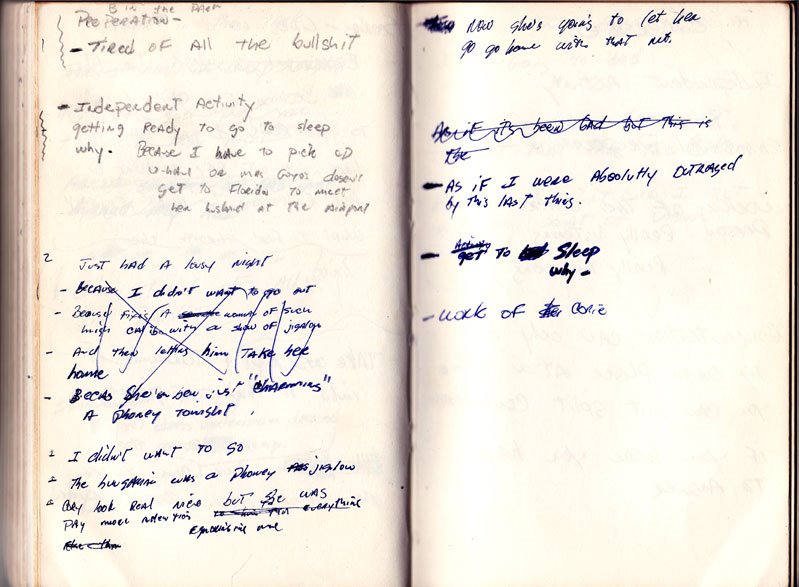 B in the PAST
PREPERATION -
- TIRED OF All the bullshit
- Independent Activity
getting READY to go to sleep
why. BECAUSE I have to pick up
U-haul OR MRS Goyos doesn't
get to Florida to meet
her husband at the Airport
2 Just had A lousy night
- BECAUSE I didn't want to go out
- BECAUSE A woman of such
high with a show of jigolow
- And then letting him TAKE her
home
- BECAUS She's been just "CHARMING"
A Phoney tonight.
1 I didn't want to go
2 The hungarian was a Phoney jigolow
look REAL nice but she was
PAY more attention to him than everything
one
Now she's going to let her
go go home with that nut.
As if its been bad but this is
the
- AS if I were Absolutly OUTRAGED
by this last thing.
Activity
- get to Sleep
why -
- work of